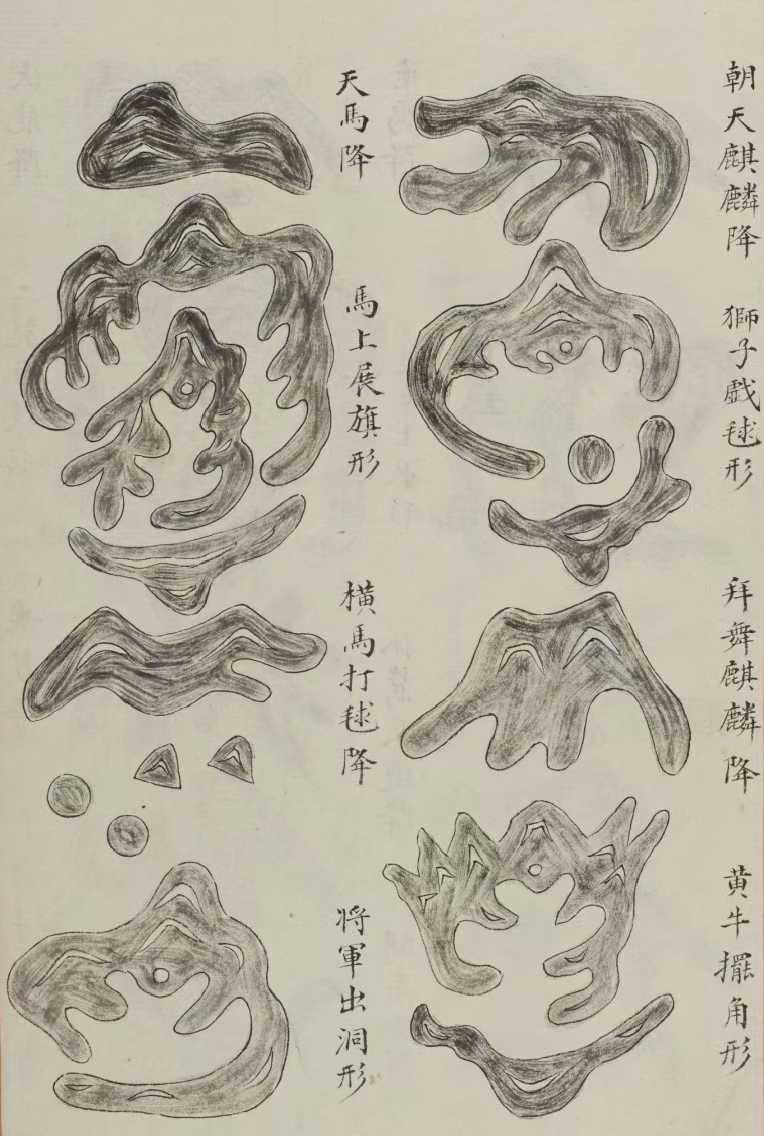 朝天麒麟降
獅子戯毬形
拜舞麒麟降
黄牛擺角形
天馬降
馬上展旗形
橫馬打毬降
将軍出洞形